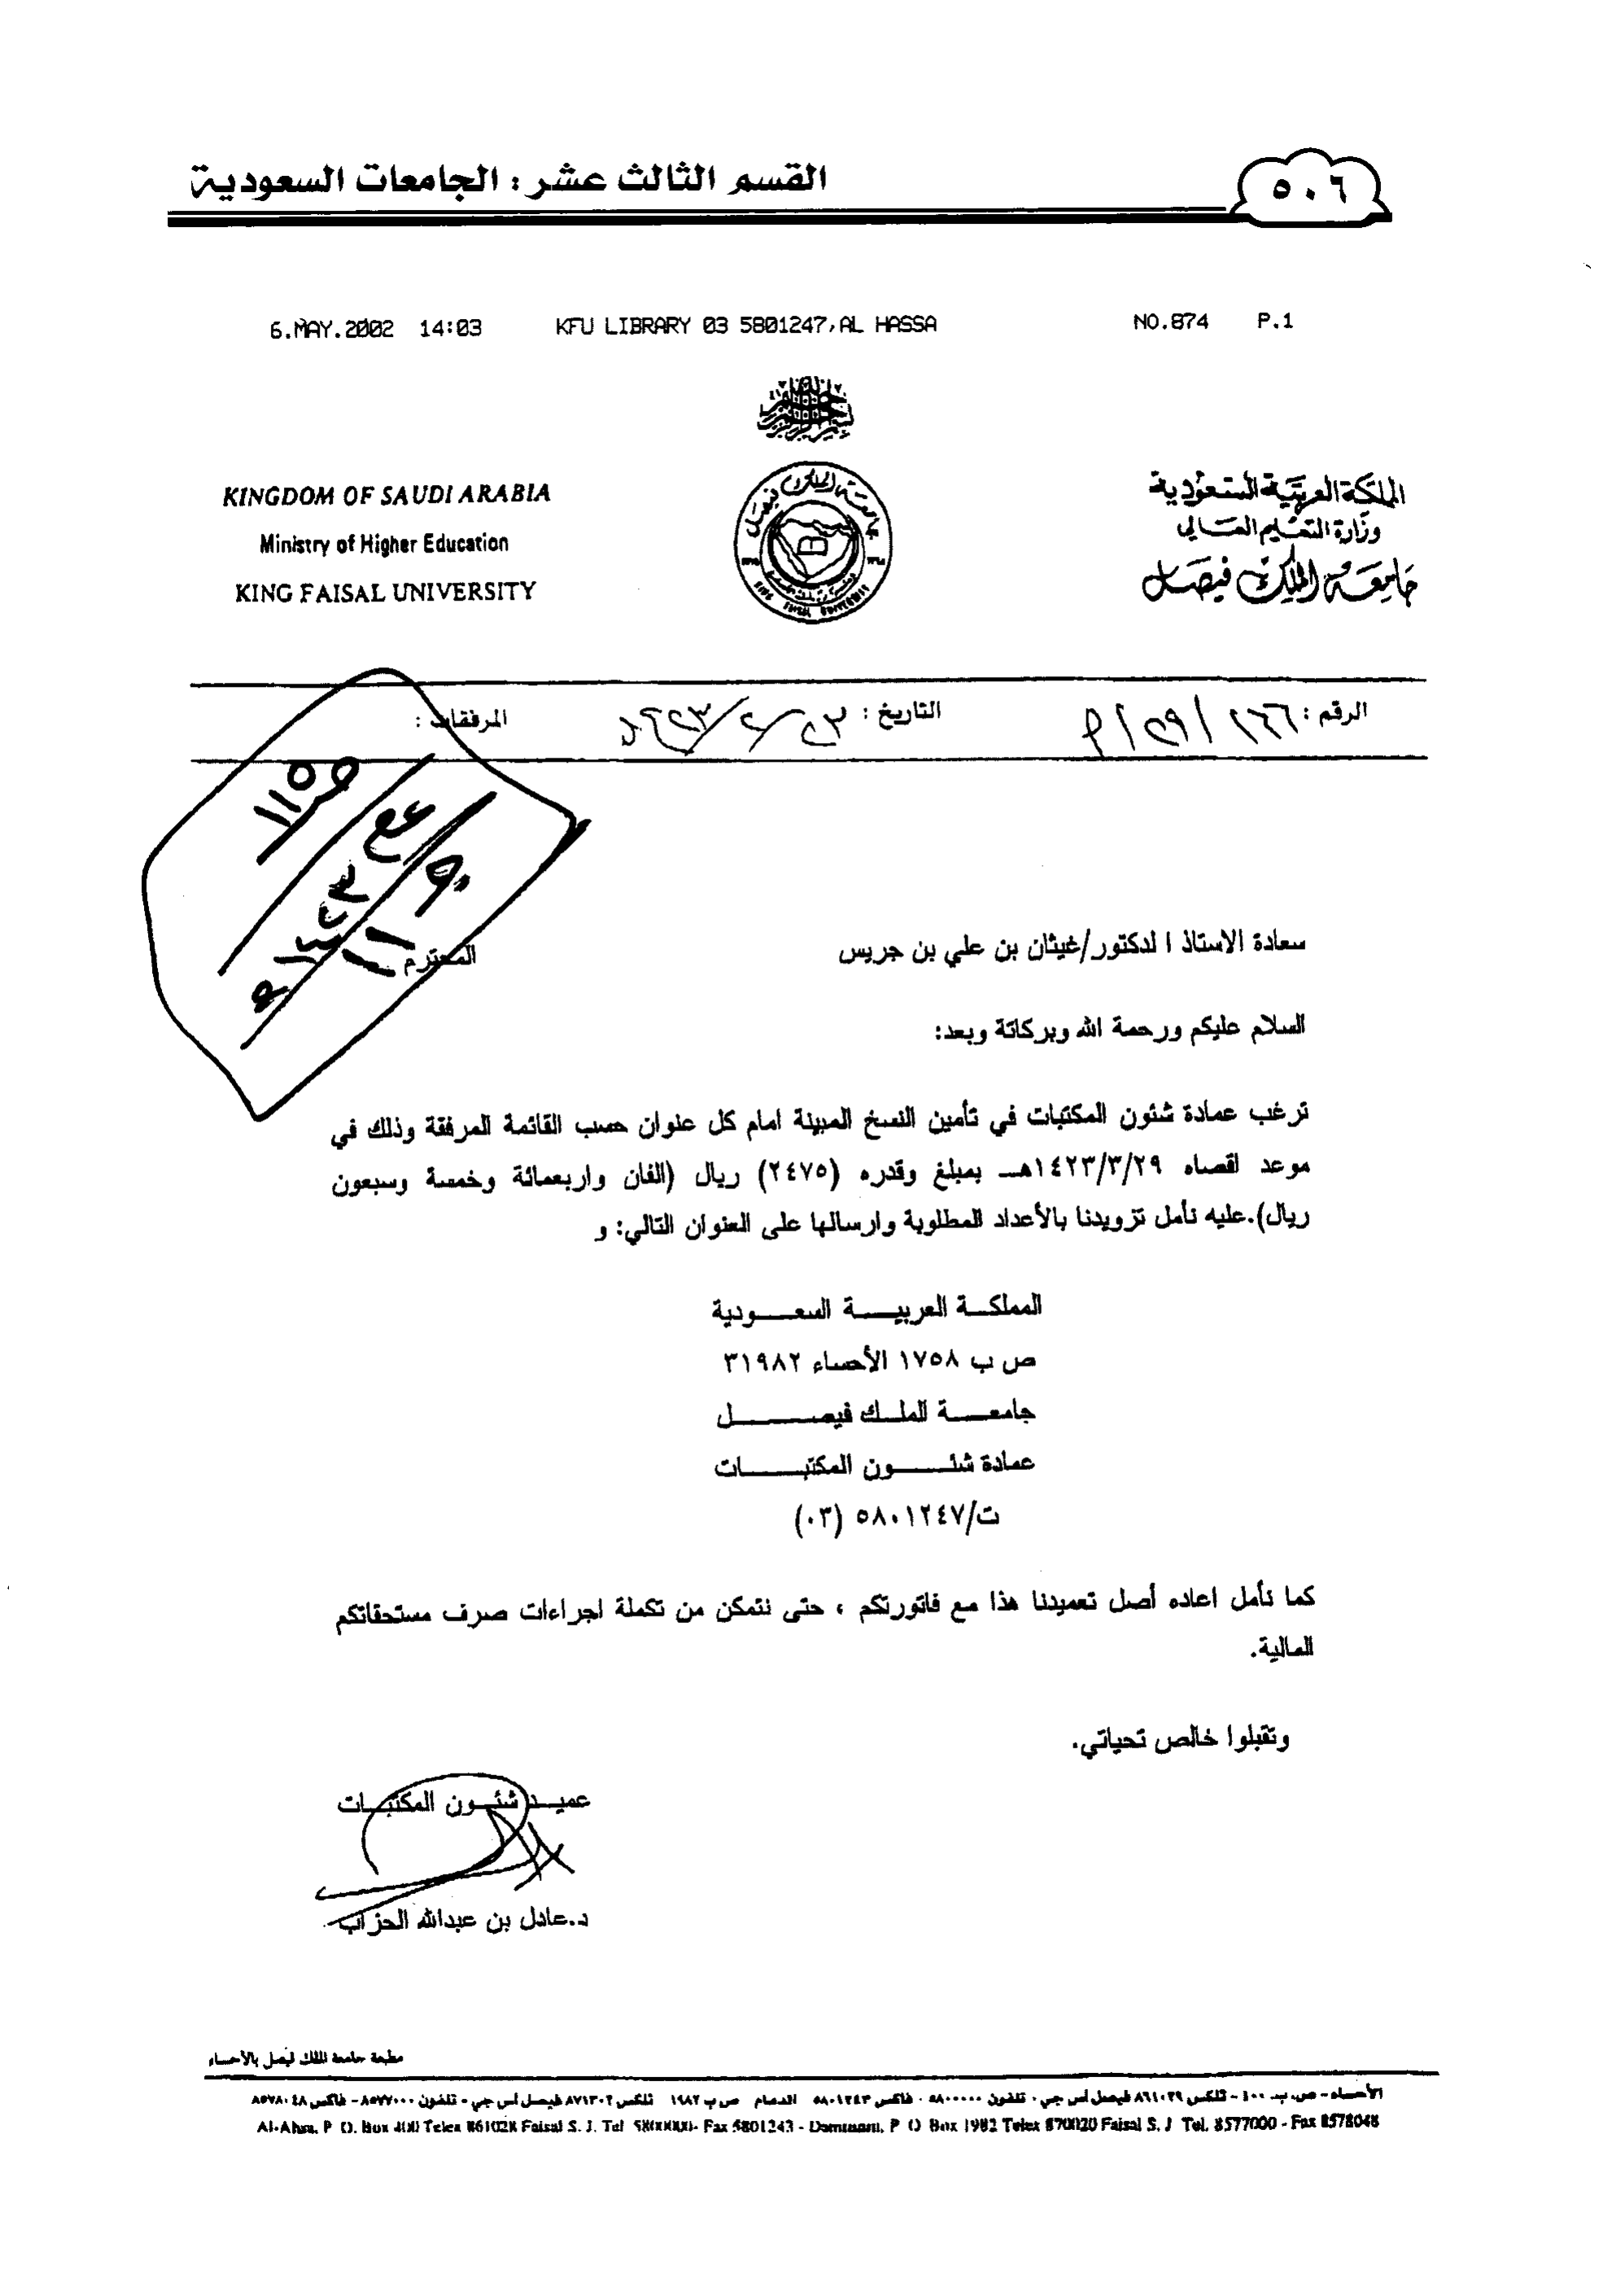 ٥٠٦
القسم الثالث عشر : الجامعات السعودية
6.MAY.2002 14:03 KFU LIBRARY 03 5801247,AL HASSA NO.874 P.1
KINGDOM OF SAUDI ARABIA
Ministry of Higher Education
KING FAISAL UNIVERSITY
المملكة العربية السعودية
وزارة التعليم العالي
جامعة الملك فيصل
الرقم :
التاريخ :
المرفقات :
سعادة الاستاذ الدكتور/غيثان بن علي بن جريس المحترم
السلام عليكم ورحمة الله وبركاتة وبعد:
ترغب عمادة شئون المكتبات في تأمين النسخ المبينة امام كل عنوان حسب القائمة المرفقة وذلك في
موعد اقصاه ١٤٢٣/٣/٢٩هـ بمبلغ وقدره (٢٤٧٥) ريال (الفان واربعمائة وخمسة وسبعون
ريال).عليه نأمل تزويدنا بالأعداد المطلوبة وارسالها على العنوان التالي: و
المملكة العربية السعودية
ص ب ١٧٥٨ الأحساء ٣١٩٨٢
جامعة الملك فيصل
عمادة شئون المكتبات
ت/٥٨٠١٢٤٧ (٠٣)
كما نأمل اعاده أصل تعميدنا هذا مع فاتورتكم ، حتى نتمكن من تكملة اجراءات صرف مستحقاتكم
المالية.
وتقبلوا خالص تحياتي.
عميد شئون المكتبات
د.عادل بن عبدالله الحزاب
مطبعة جامعة الملك فيصل بالأحساء
الأحساء - ص.ب ٤٠٠ - تلكس ٨٦١٠٢٩ فيصل أس جي - تلفون ٥٨٠٠٠٠٠ - فاكس ٥٨٠١٢٤٣ الدمام ص ب ١٩٨٢ تلكس ٨٧١٣٠٢ فيصل أس جي - تلفون ٨٥٧٧٠٠٠ - فاكس ٨٥٧٨٠٤٨
Al-Ahsa, P. O. Box 400 Telex 861028 Faisal S. J. Tel 5800000- Fax 5801243 - Dammam, P O Box 1982 Telex 870020 Faisal S. J Tel. 8577000 - Fax 8578048